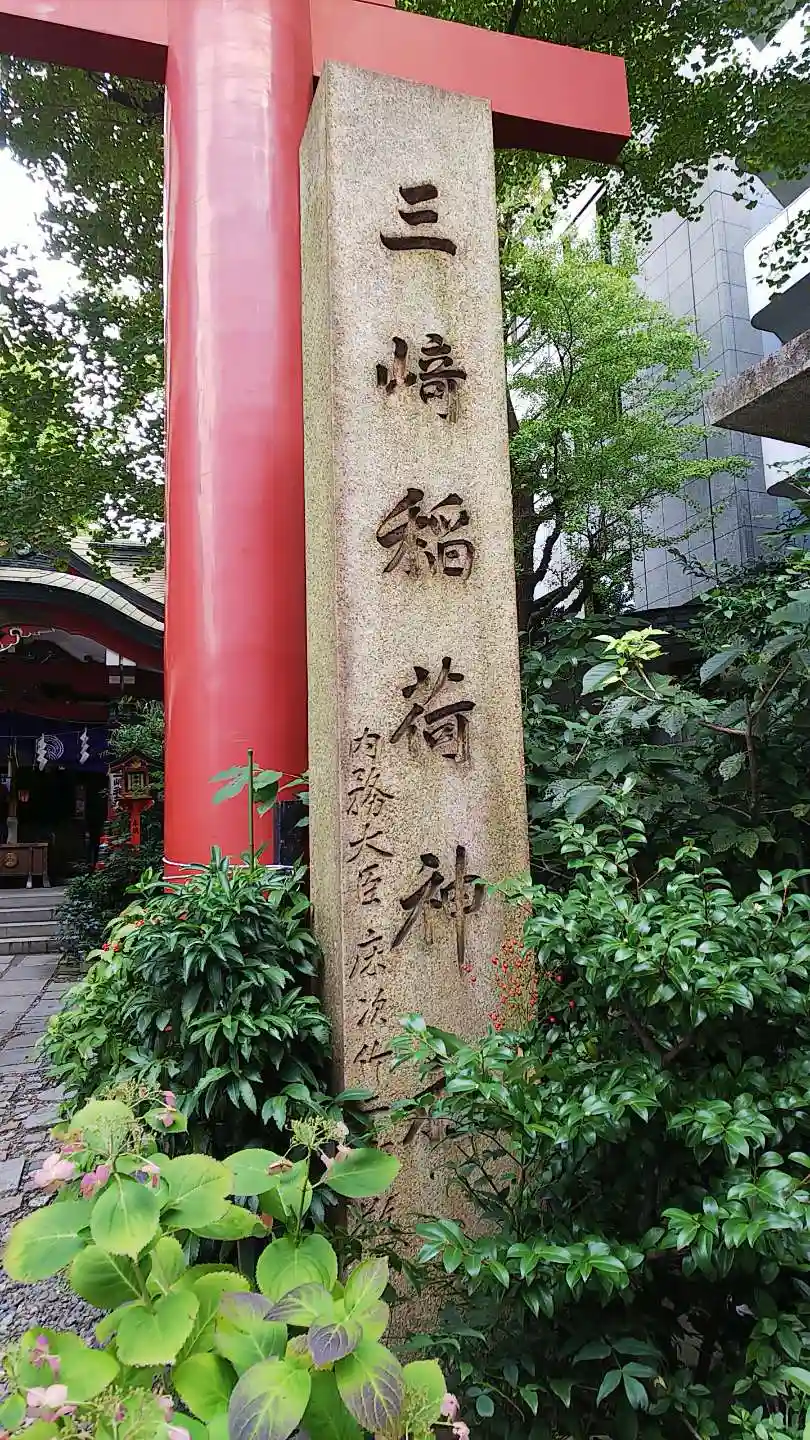 三﨑稲荷神
内務大臣床次竹